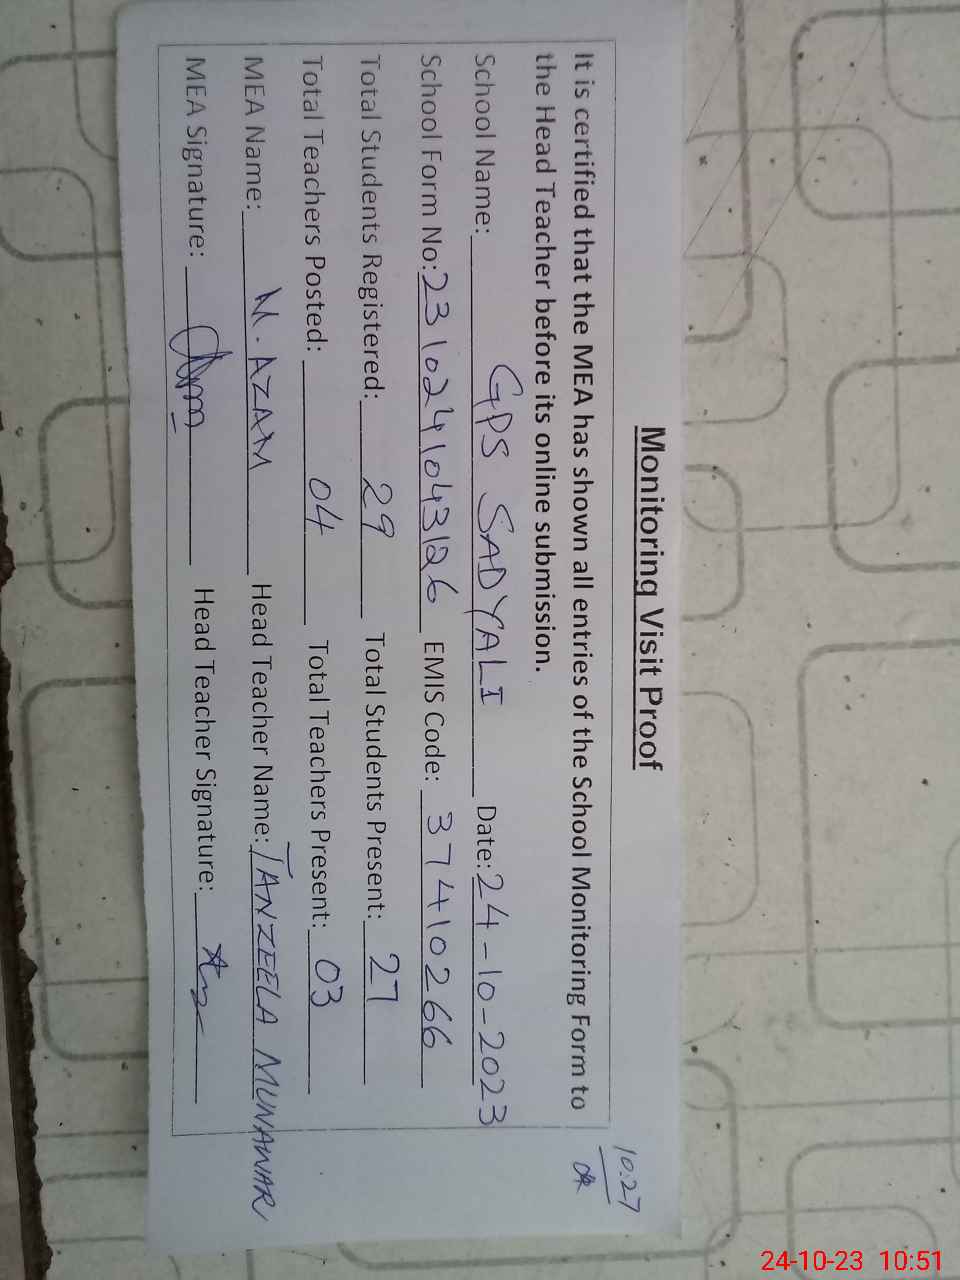 Monitoring Visit Proof
It is certified that the MEA has shown all entries of the School Monitoring Form to
the Head Teacher before its online submission.
School Name: GPS SADYALI Date: 24-10-2023
School Form No: 2310241043126 EMIS Code: 37410266
Total Students Registered: 29 Total Students Present: 27
Total Teachers Posted: 04 Total Teachers Present: 03
MEA Name: M. AZAM Head Teacher Name: TANZEELA MUNAWAR
MEA Signature: Head Teacher Signature:
10:27
24-10-23 10:51